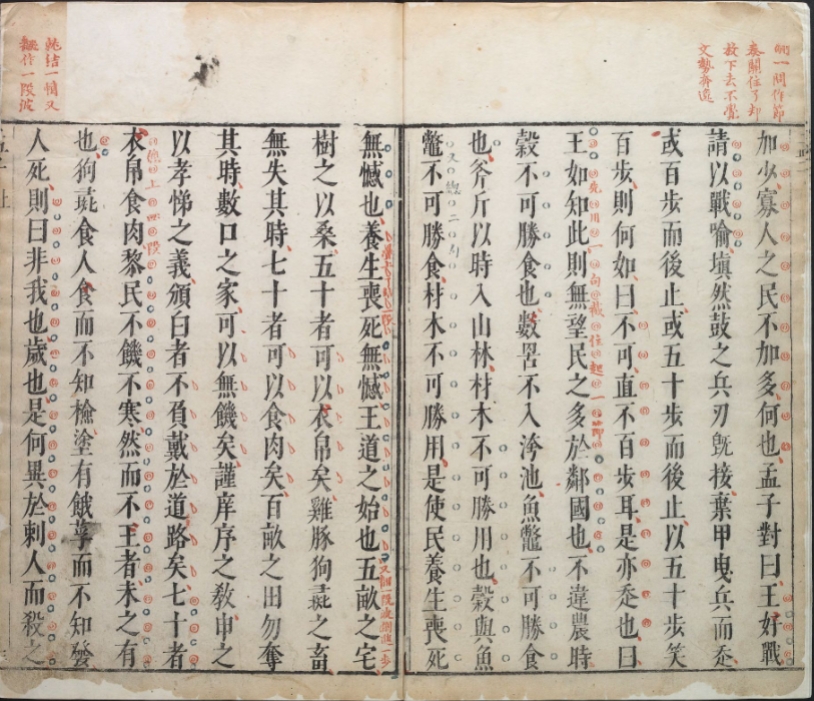 一問作節
奏關住了却
放下去不覺
文勢奔
加少寡人之民不加多何也孟子對曰王好戰
請以戰喻塡然鼓之兵刃旣接棄甲曳兵而走
或百步而後止或五十步而後止以五十步笑
百步則何如曰不可直不百步耳是亦走也曰
用一句截住起一節
王如知此則無望民之多於鄰國也不違農時
穀不可勝食也數罟不入洿池魚鼈不可勝食
也斧斤以時入山林材木不可勝用也穀與魚
又總二句
鼈不可勝食材木不可勝用是使民養生喪死
無憾也養生喪死無憾王道之始也五畝之宅
樹之以桑五十者可以衣帛矣雞豚狗彘之畜
無失其時七十者可以食肉矣百畝之田勿奪
其時數口之家可以無饑矣謹庠序之敎申之
以孝悌之義頒白者不負戴於道路矣七十者
總上四段
衣帛食肉黎民不饑不寒然而不王者未之有
也狗彘食人食而不知檢塗有餓莩而不知發
人死則曰非我也歲也是何異於刺人而殺之
結一情又
作一段波